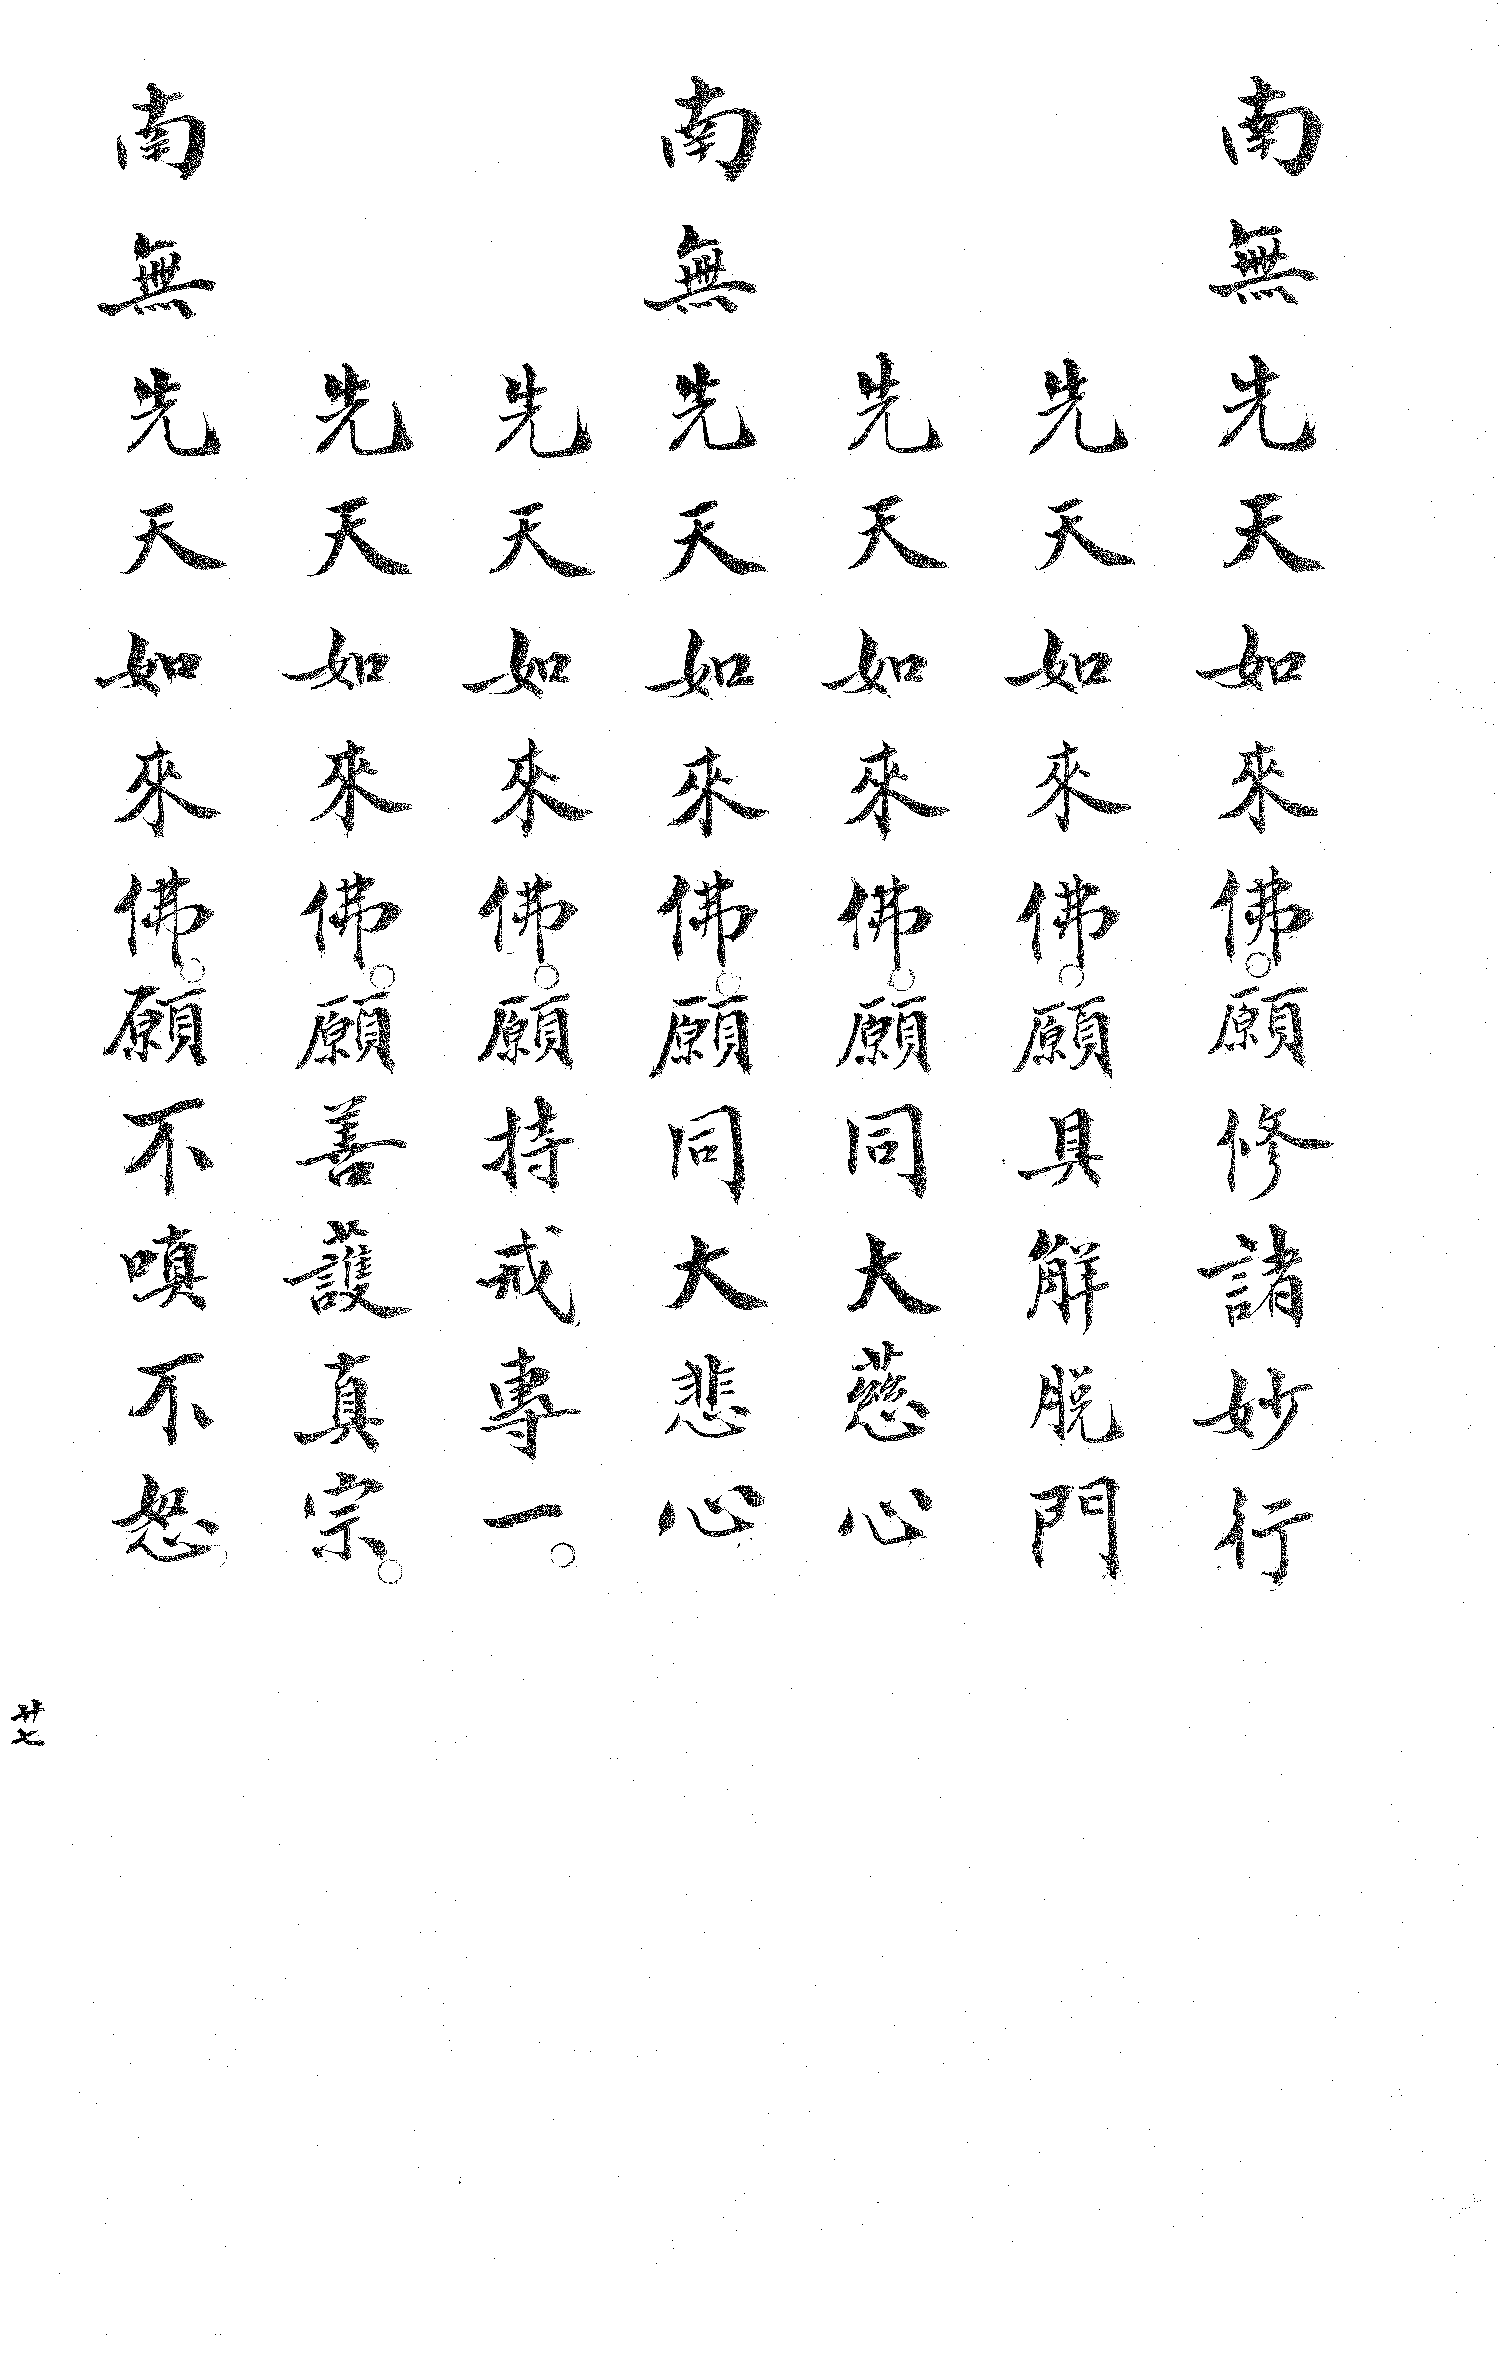 南無先天如來佛。願修諸妙行
先天如來佛。願具解脱門
先天如來佛。願同大慈心
南無先天如來佛。願同大悲心
先天如來佛。願持戒專一。
先天如來佛。願善護真宗。
南無先天如來佛。願不嗔不怒。
廿七